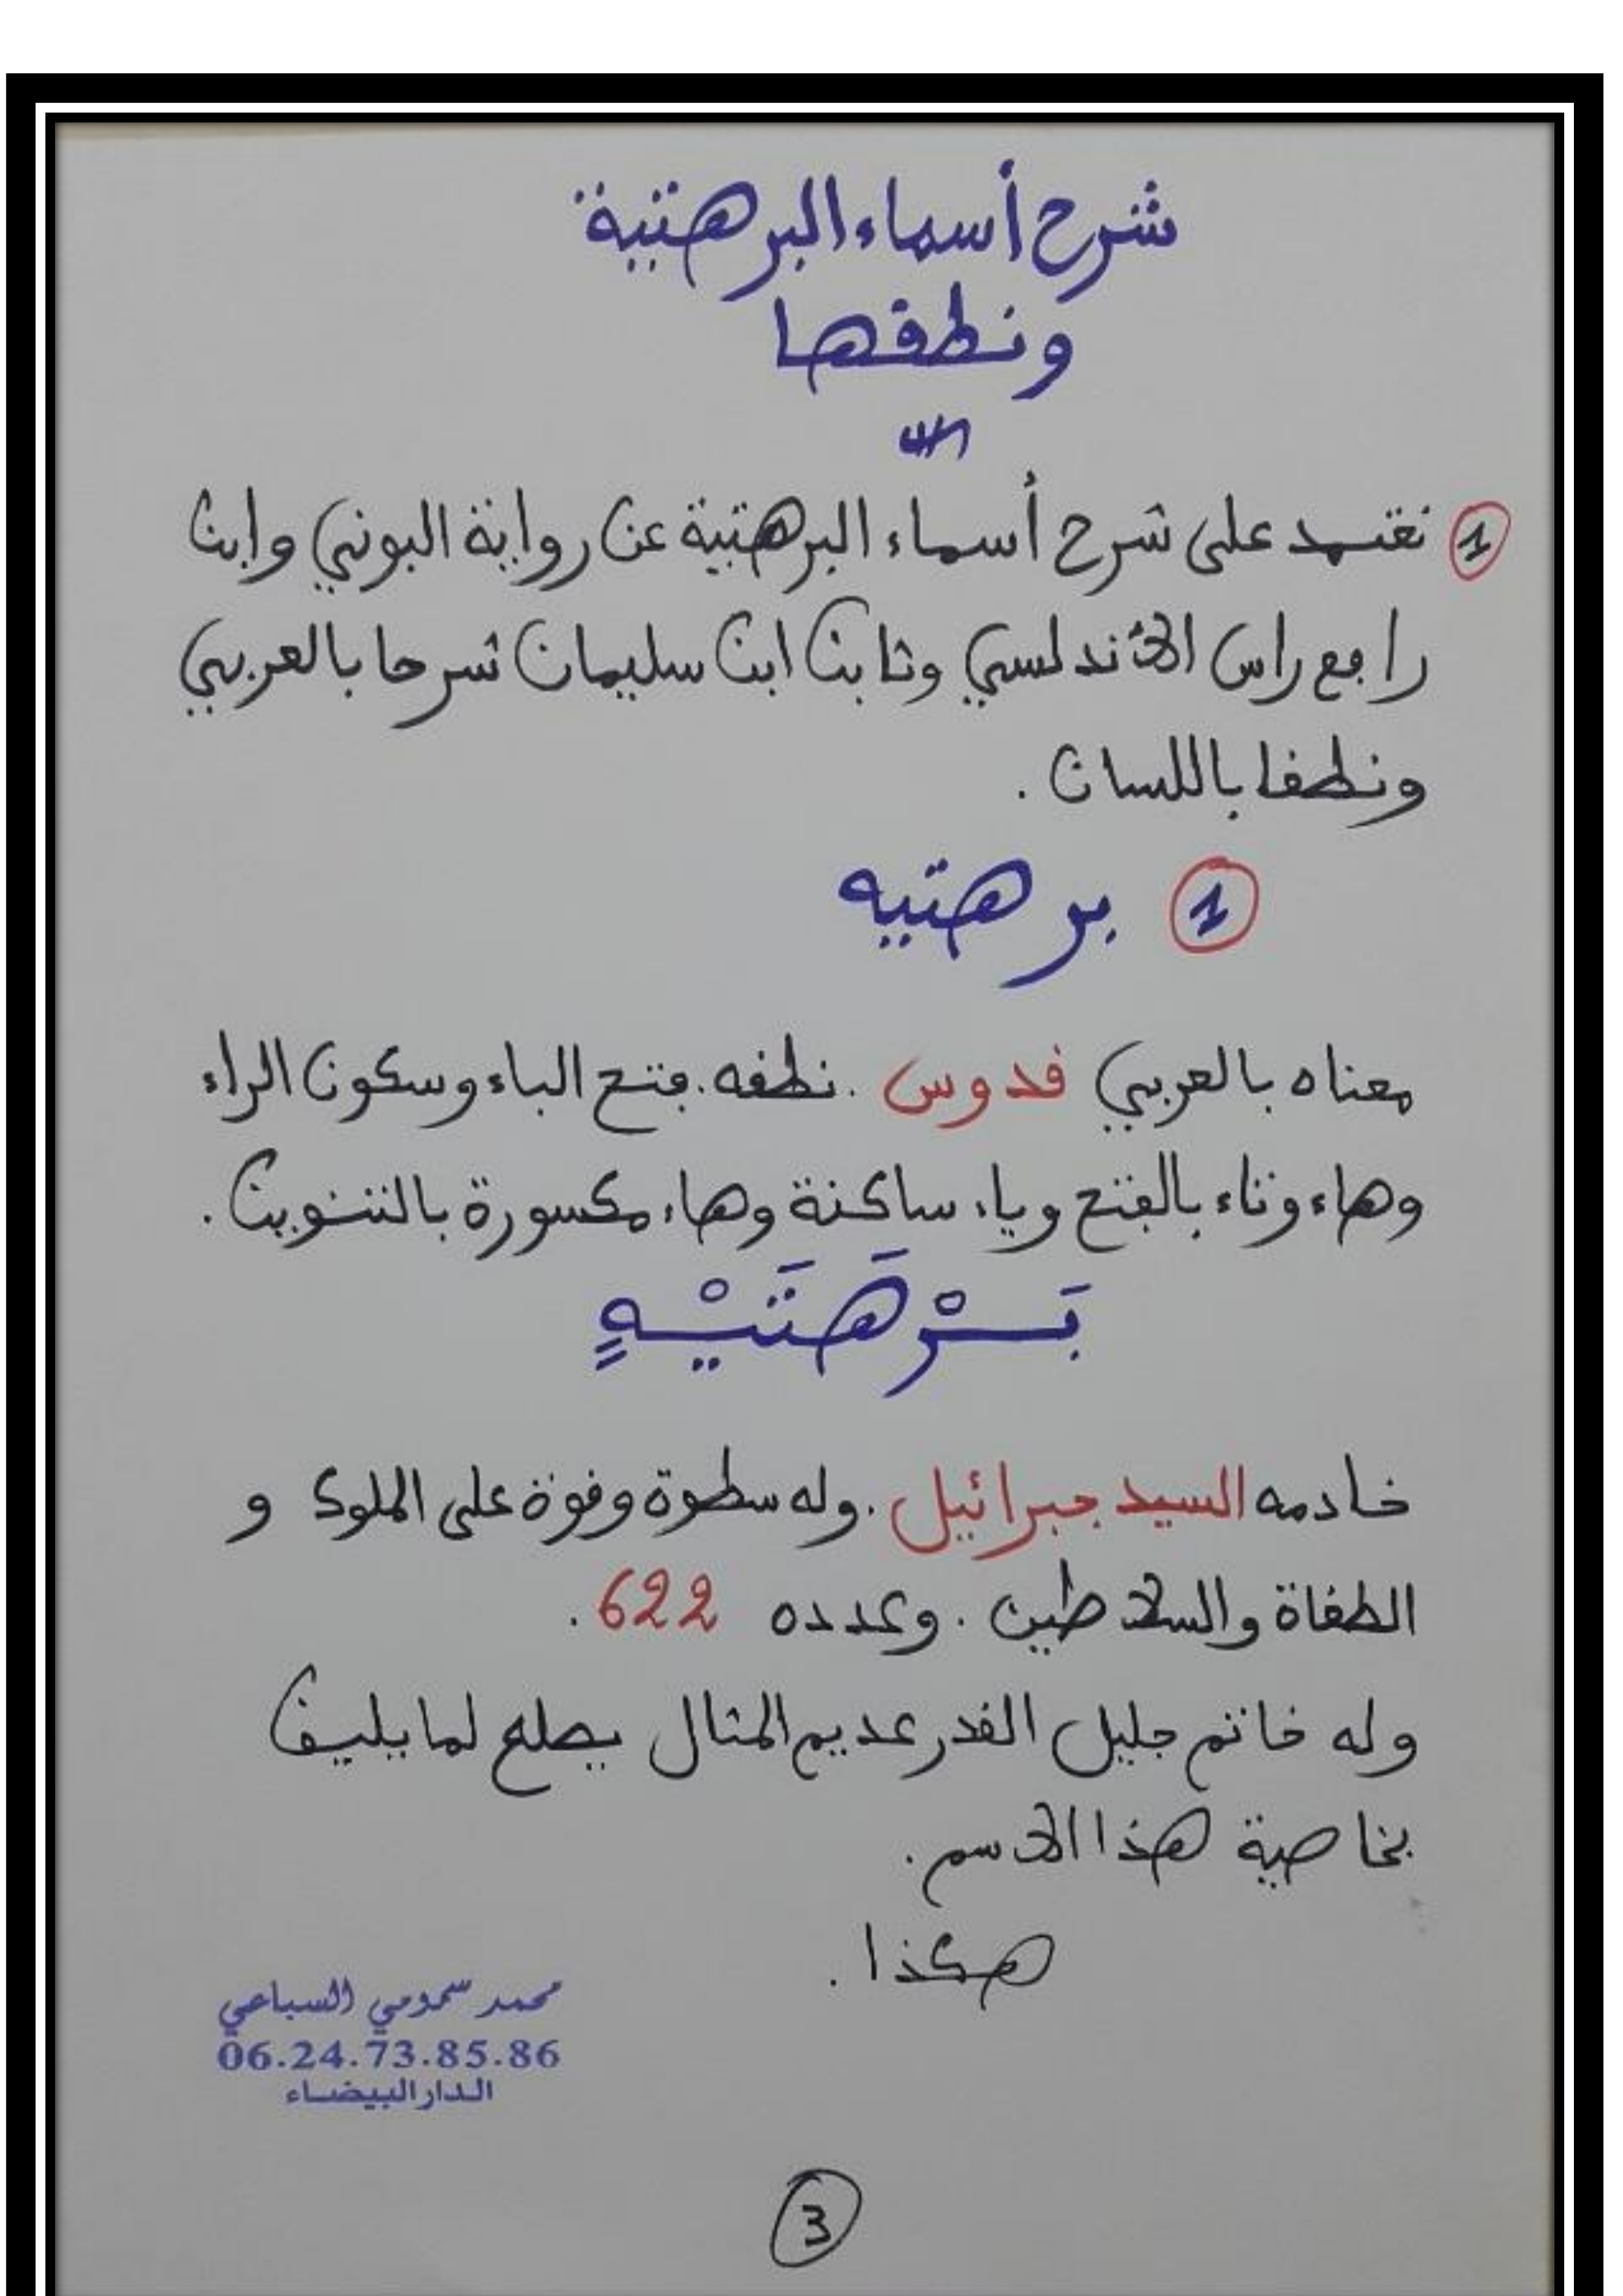 شرح أسماء البرهتية
ونطقها
① نعتمد على شرح أسماء البرهتية عن رواية البوني وابن
رافع راس الأندلسي وثابت ابن سليمان شرحا بالعربي
ونطقا باللسان .
① برهتيه
معناه بالعربي قدوس . نطقه . بفتح الباء وسكون الراء
وهاء وتاء بالفتح وياء ساكنة وهاء مكسورة بالتنوين .
بَـرْهَتَيْـهٍ
خادمه السيد جبرائيل . وله سطوة وقوة على الملوك و
الطغاة والسلاطين . وعدده 622 .
وله خاتم جليل القدر عديم المثال يصلح لما يليق
بخاصية هذا الاسم .
هكذا .
محمد سمومي السباعي
06.24.73.85.86
الدار البيضاء
③